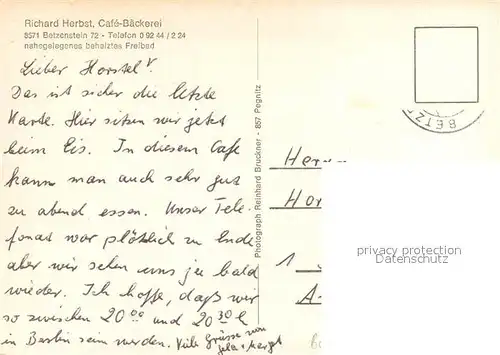 Richard Herbst, Café-Bäckerei
8571 Betzenstein 72 - Telefon 0 92 44 / 2 24
nahegelegenes beheiztes Freibad
Lieber Horstel
Das ist sicher die letzte
Karte. Hier sitzen wir jetzt
beim Eis. In diesem Cafe
kann man auch sehr gut
zu abend essen. Unser Tele-
fonat war plötzlich zu Ende
aber wir sehen uns ja bald
wieder. Ich hoffe, daß wir
so zwischen 20 00 und 20 30
in Berlin sein werden. Viele Grüsse von
Photograph Reinhard Bruckner - 857 Pegnitz
BETZ
Her
Hor
1
A-
privacy protection
Datenschutz